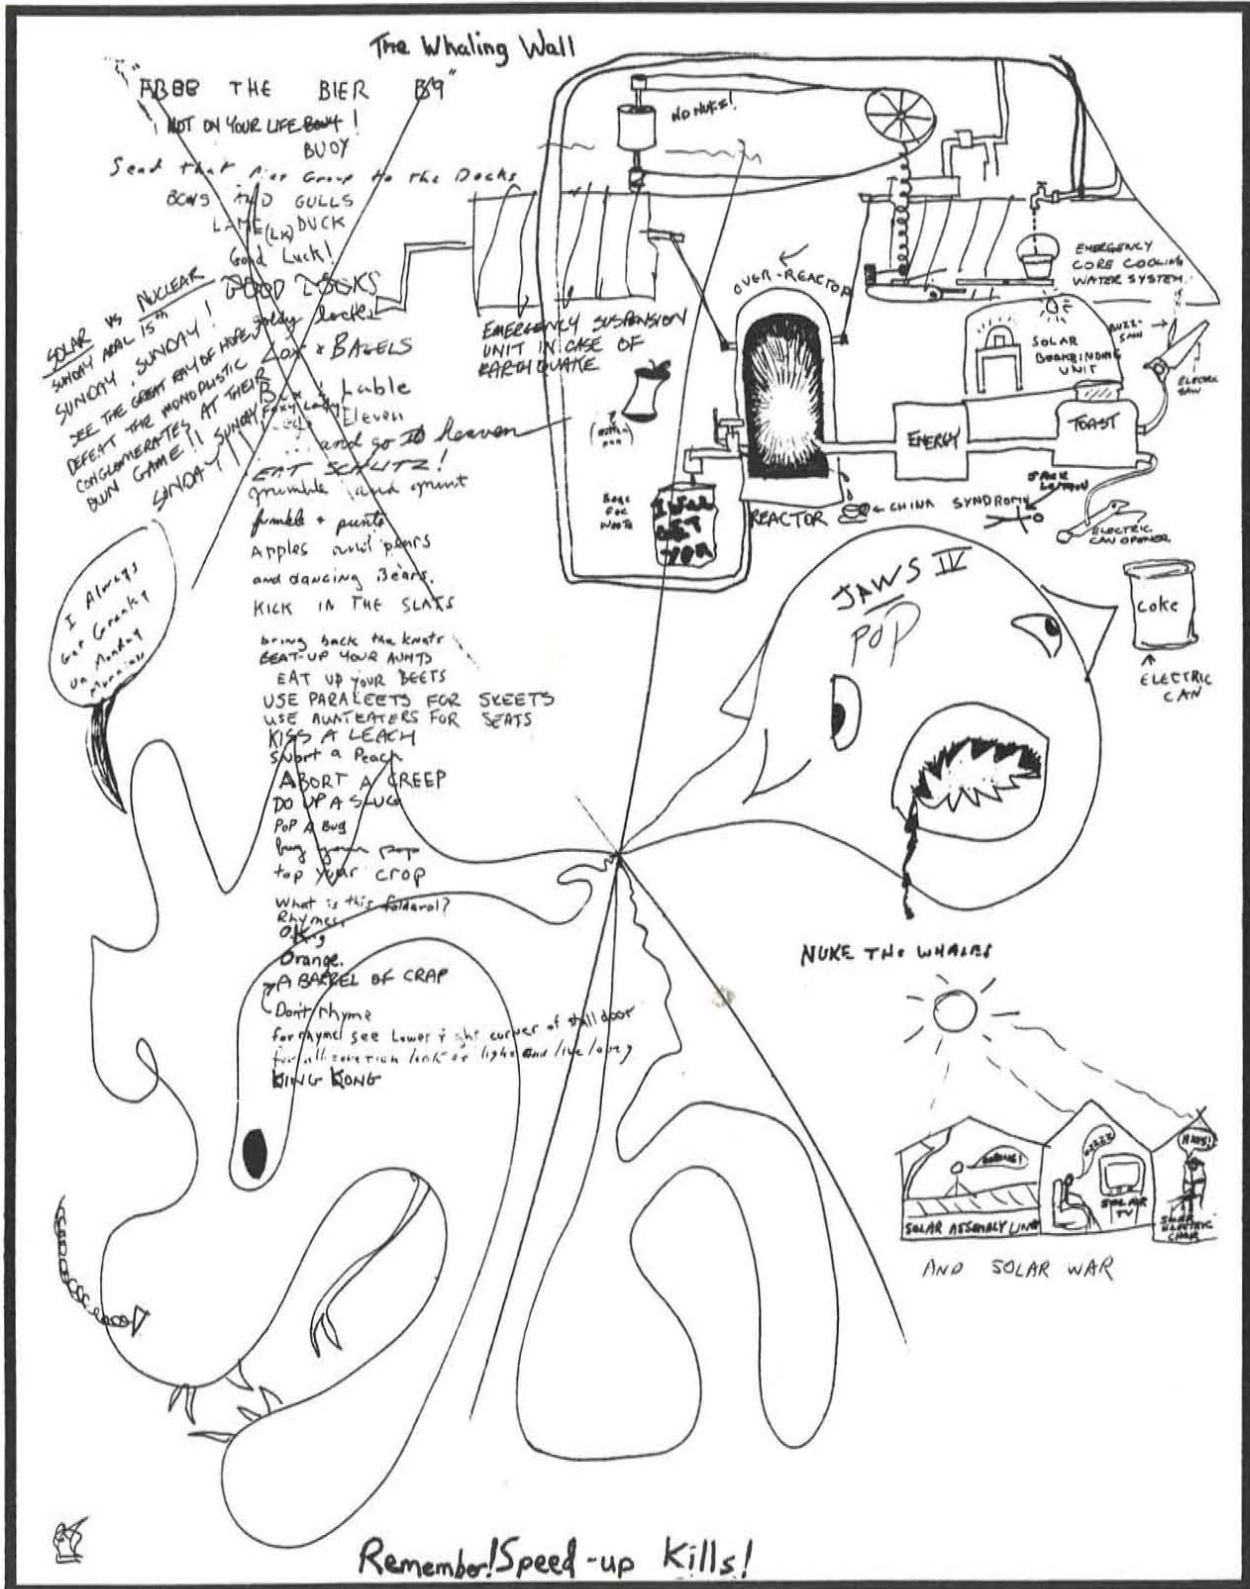 The Whaling Wall
THE BIER
NOT ON YOUR LIFE
BUOY
Send that Group to the Docks
AND GULLS
LAME DUCK
Good Luck!
GOOD LOOKS
goldy locks
LOX & BAGELS
Lable
Foxy Lady
Eleven
and go to heaven
EAT SCHLITZ!
grumble and grunt
fumble + punts
Apples and pears
and dancing Bears.
KICK IN THE SLATS
bring back the knats
BEAT-UP YOUR AUNTS
EAT UP YOUR BEETS
USE PARALEETS FOR SKEETS
USE AUNTEATERS FOR SEATS
KISS A LEACH
Snort a Peach
ABORT A CREEP
DO UP A SLUG
POP A Bug
bug your pop
top your crop
What is this folderol?
Rhymes.
Orange.
A BARREL OF CRAP
Don't rhyme
for rhymes see Lower right corner of stall door
KING KONG
SOLAR VS NUCLEAR
SUNDAY APRIL 15th
SUNDAY, SUNDAY!
SEE THE GREAT RAY OF HOPE
DEFEAT THE MONOPLISTIC
CONGLOMERATES AT THEIR
OWN GAME!! SUNDAY
SUNDAY!!!
I Always
Get Cranky
on Monday
Mornings
NO NUKE!
EMERGENCY SUSPENSION
UNIT IN CASE OF
EARTHQUAKE
OVER-REACTOR
EMERGENCY
CORE COOLING
WATER SYSTEM
SOLAR
UNIT
BUZZ-
SAW
ELECTRIC
SAW
ENERGY
TOAST
REACTOR
CHINA SYNDROME
ELECTRIC
CAN OPENER
JAWS IV
POP
Coke
ELECTRIC
CAN
NUKE THE WHALES
BORING!
ZZZZ
SOLAR ASSEMBLY LINE
SOLAR
TV
SOLAR
ELECTRIC
CHAIR
AND SOLAR WAR
Remember! Speed-up Kills!